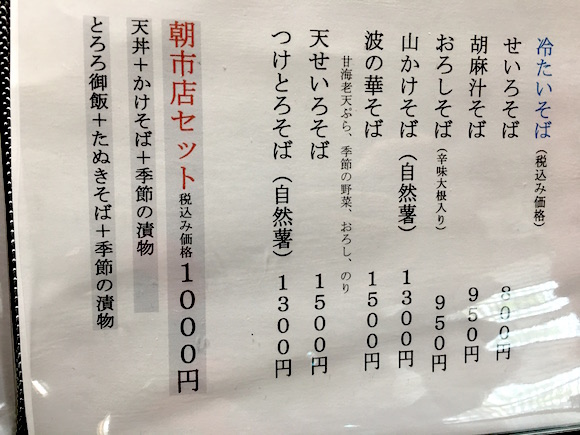 冷たいそば（税込み価格）
せいろそば 800円
胡麻汁そば 950円
おろしそば（辛味大根入り） 950円
山かけそば（自然薯） 1300円
波の華そば 1500円
甘海老天ぷら、季節の野菜、おろし、のり
天せいろそば 1500円
つけとろそば（自然薯） 1300円
朝市店セット税込み価格1000円
天丼＋かけそば＋季節の漬物
とろろ御飯＋たぬきそば＋季節の漬物